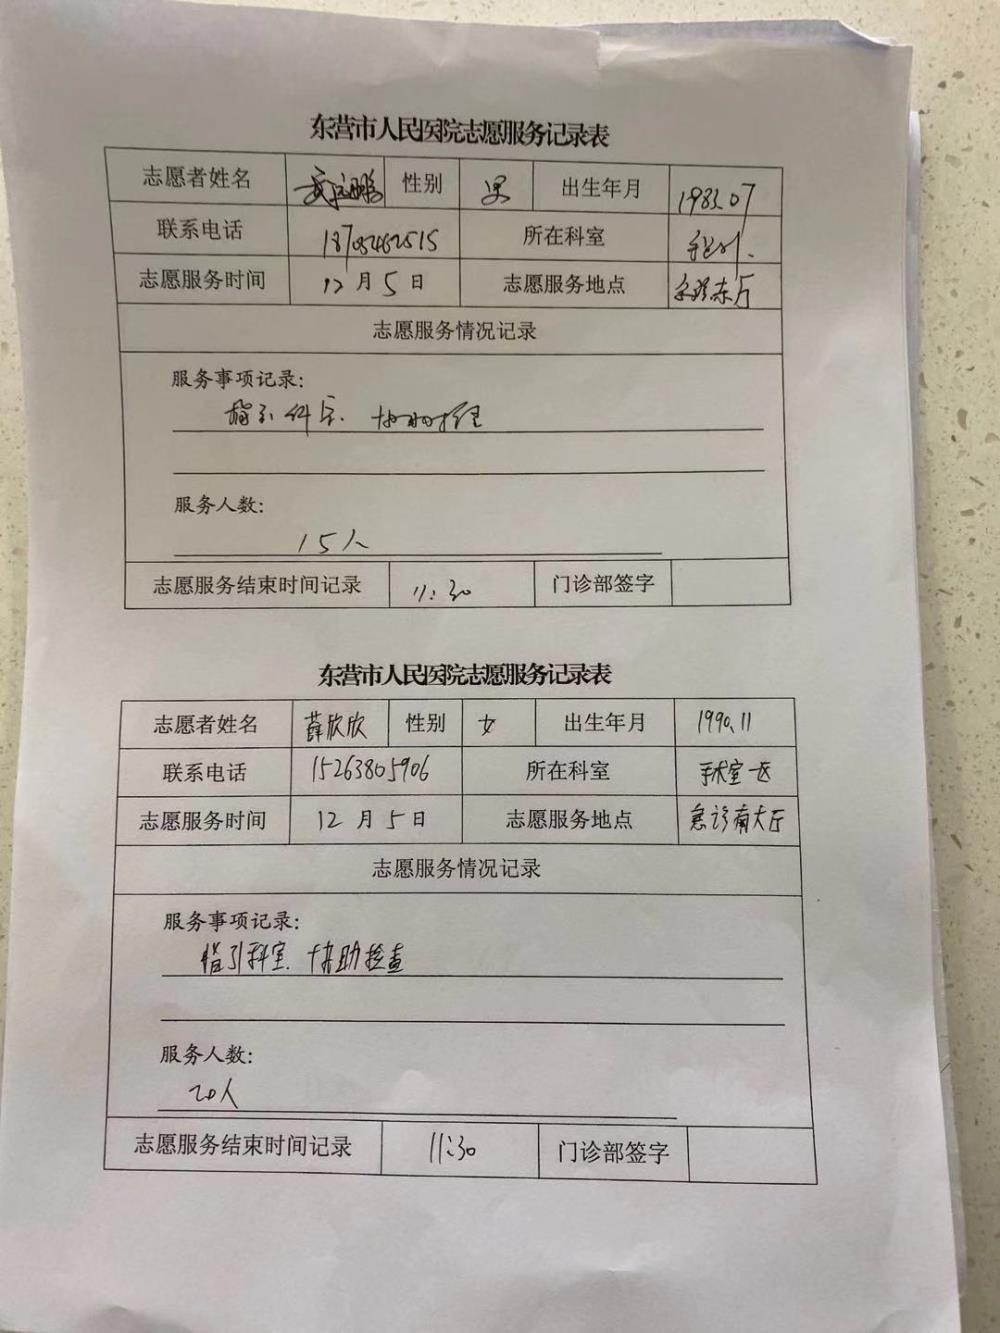 东营市人民医院志愿服务记录表
志愿者姓名 性别 男 出生年月 1983.07
联系电话 18705462515 所在科室
志愿服务时间 12月5日 志愿服务地点
志愿服务情况记录
服务事项记录:
指引科室、协助
服务人数:
15人
志愿服务结束时间记录 11:30 门诊部签字
东营市人民医院志愿服务记录表
志愿者姓名 薛欣欣 性别 女 出生年月 1990.11
联系电话 15263805906 所在科室 手术室一区
志愿服务时间 12月5日 志愿服务地点 急诊南大厅
志愿服务情况记录
服务事项记录:
指引科室、协助检查
服务人数:
20人
志愿服务结束时间记录 11:30 门诊部签字